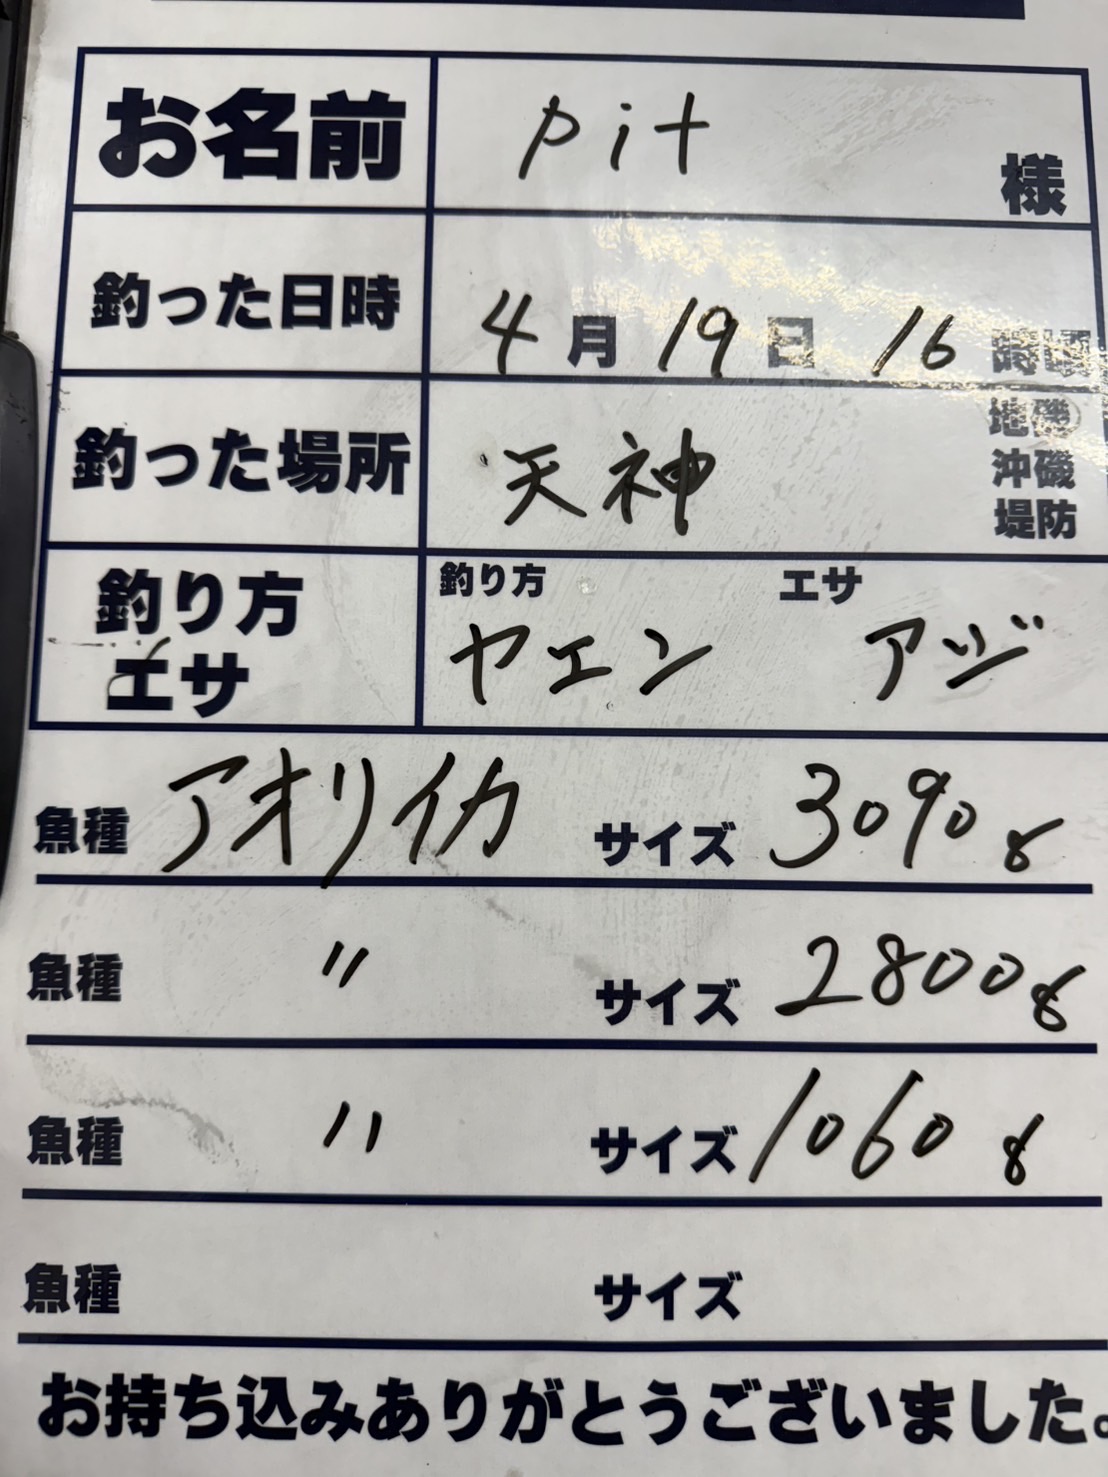 お名前 pit 様
釣った日時 4月19日 16時頃
釣った場所 天神 地磯
沖磯
堤防
釣り方 エサ
釣り方 ヤエン
エサ アジ
魚種 アオリイカ サイズ 3090g
魚種 〃 サイズ 2800g
魚種 〃 サイズ 1060g
魚種 サイズ
お持ち込みありがとうございました。